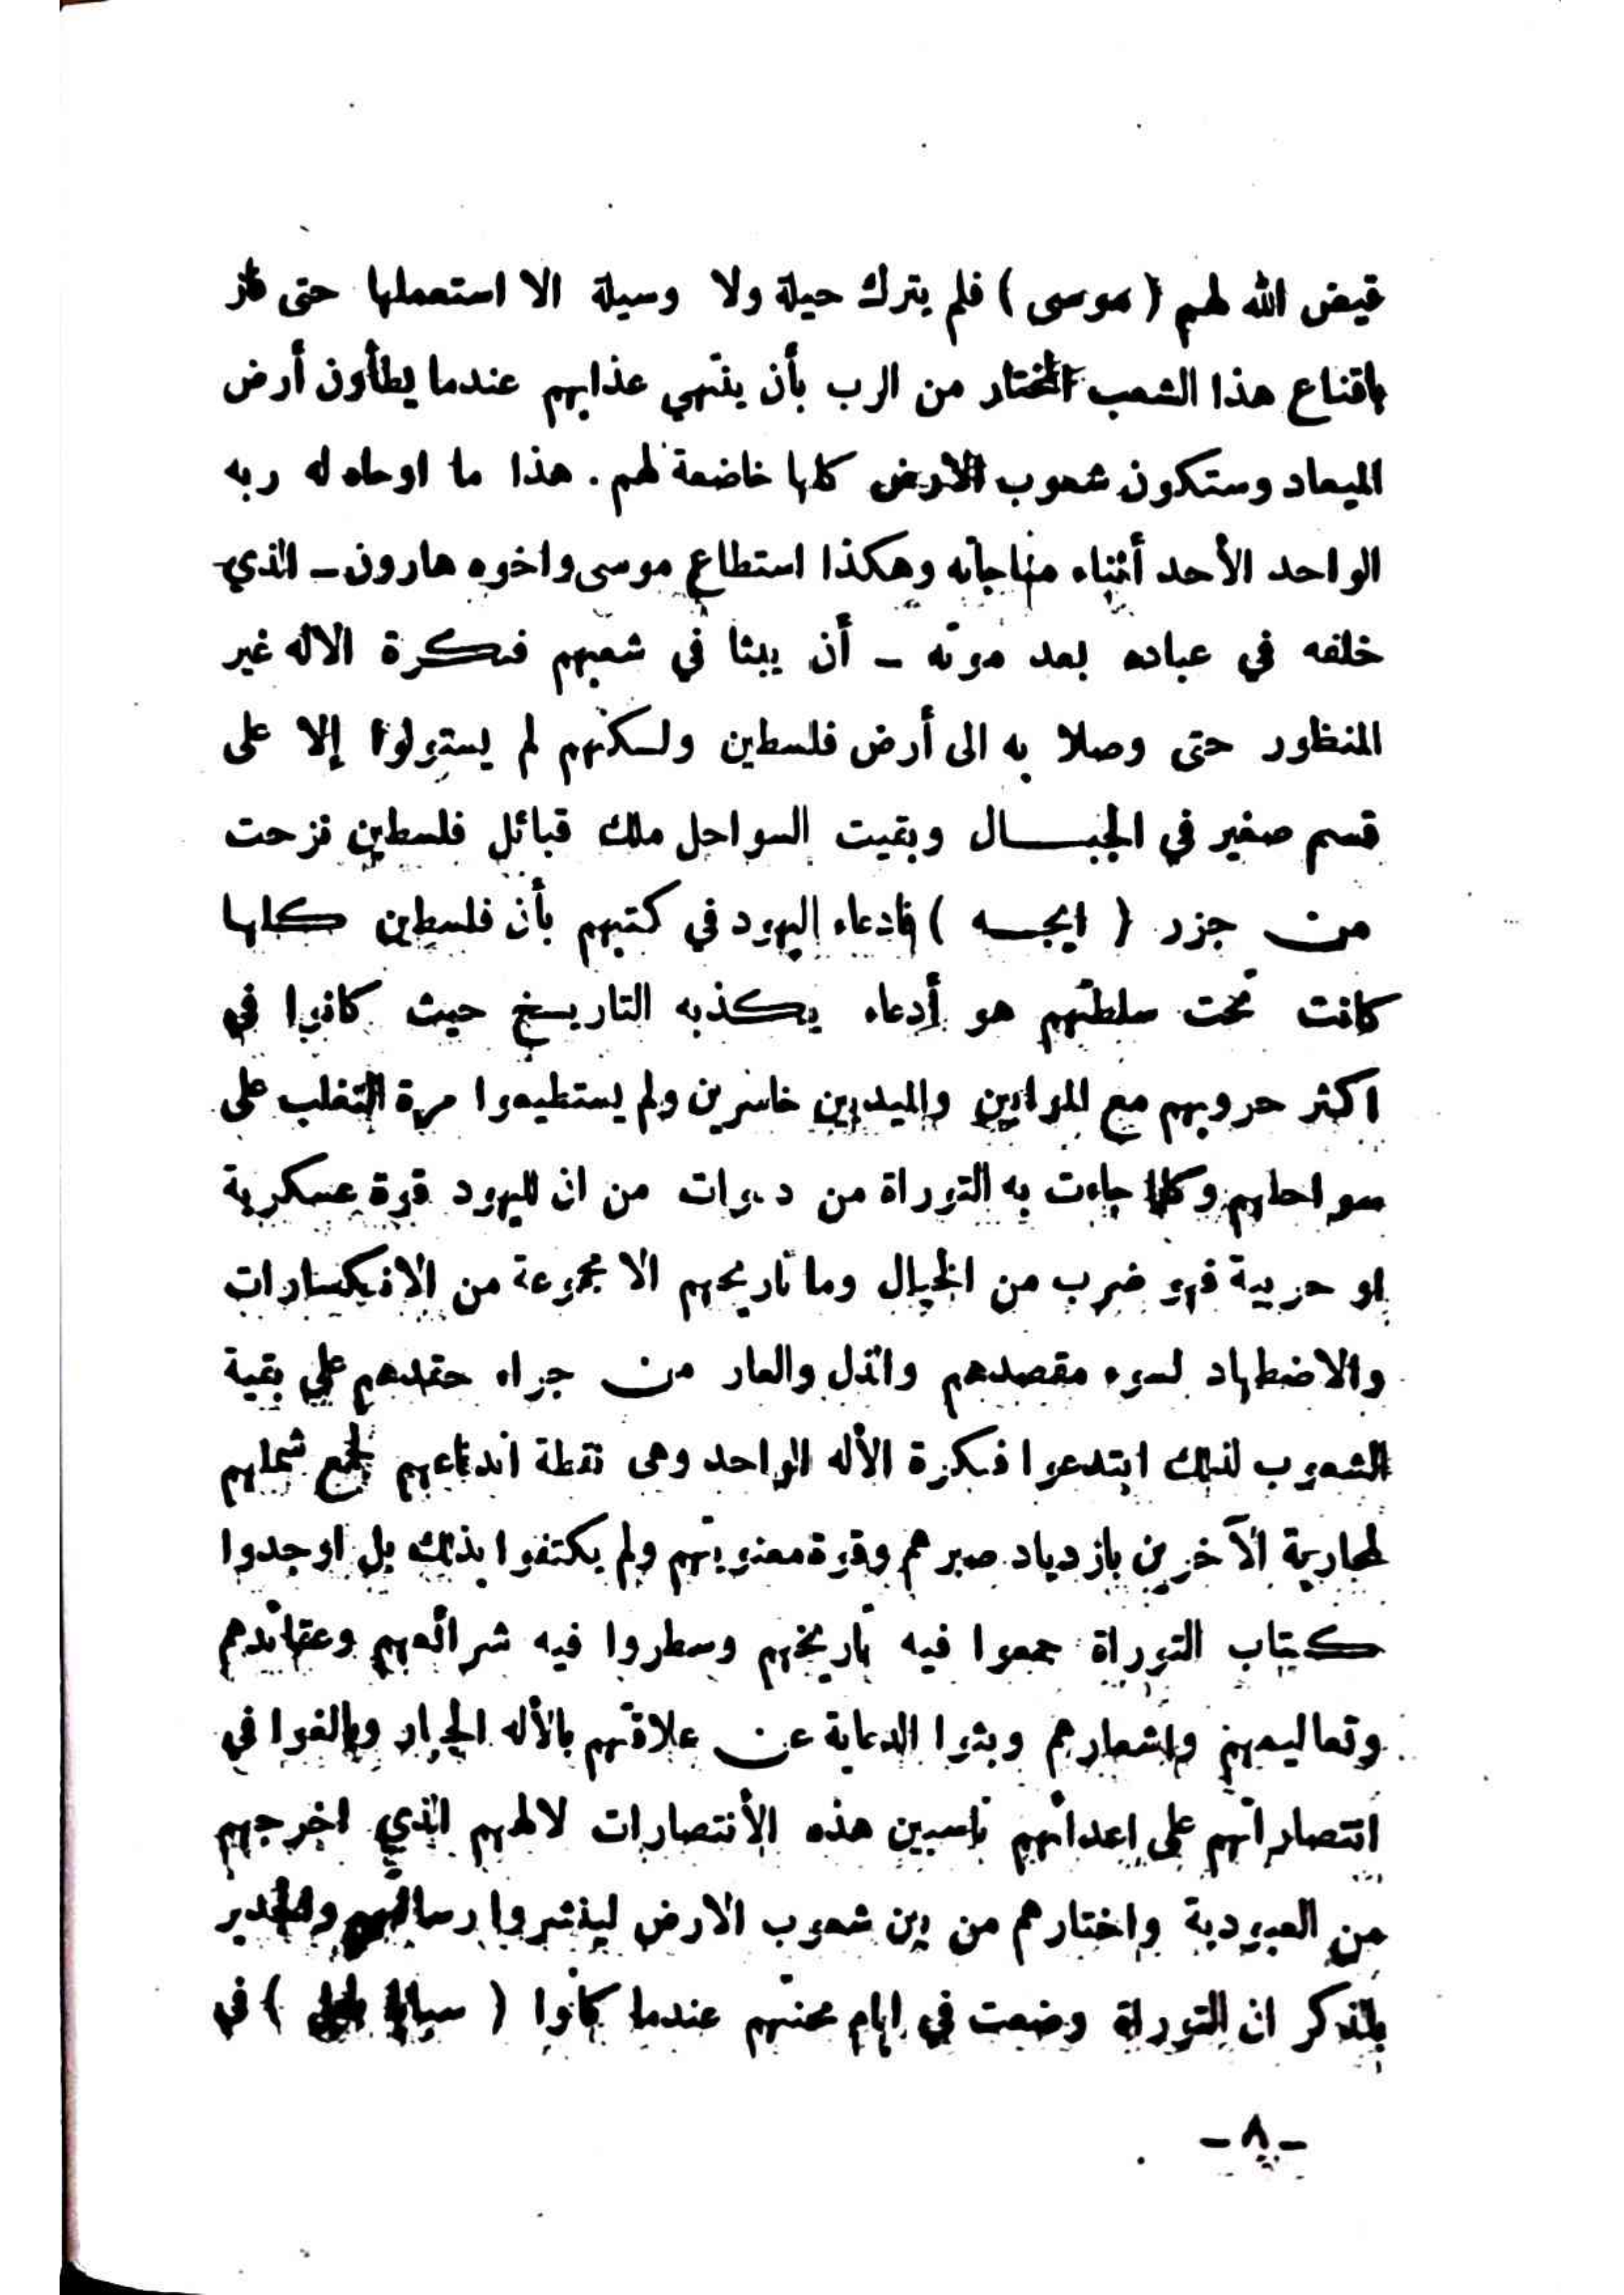 قيض الله لهم (موسى) فلم يترك حيلة ولا وسيلة الا استعملها حتى فاز
باقناع هذا الشعب المختار من الرب بأن ينتهي عذابهم عندما يطأون أرض
الميعاد وستكون شعوب الأرض كلها خاضعة لهم. هذا ما اوحاه له ربه
الواحد الأحد أثناء مناجاته وهكذا استطاع موسى واخوه هارون - الذي
خلفه في عباده بعد موته - أن يبثا في شعبهم فكرة الاله غير
المنظور حتى وصلا به الى أرض فلسطين ولكنهم لم يستولوا إلا على
قسم صغير في الجبال وبقيت السواحل ملك قبائل فلسطين نزحت
من جزر (ايجه) فادعاء اليهود في كتبهم بأن فلسطين كلها
كانت تحت سلطتهم هو أدعاء يكذبه التاريخ حيث كانوا في
اكثر حروبهم مع المرابين والميديين خاسرين ولم يستطيعوا مرة التغلب على
سواحلهم وكلما جاءت به التوراة من دعوات من ان لليهود قوة عسكرية
او حربية فهو ضرب من الخيال وما تاريخهم الا مجموعة من الانكسارات
والاضطهاد لسوء مقصدهم والذل والعار من جراء حقدهم على بقية
الشعوب لذلك ابتدعوا فكرة الأله الواحد وهى نقطة اندفاعهم لجمع شملهم
لمحاربة الآخرين بازدياد صبرهم وقوة معنويتهم ولم يكتفوا بذلك بل اوجدوا
كتاب التوراة جمعوا فيه تاريخهم وسطروا فيه شرائعهم وعقائدهم
وتعاليمهم واشعارهم وبثوا الدعاية عن علاقتهم بالأله الجبار وبالغوا في
انتصاراتهم على اعدائهم ناسبين هذه الأنتصارات لالههم الذي اخرجهم
من العبودية واختارهم من بين شعوب الارض لينشروا رسالتهم والجدير
بالذكر ان التوراة وضعت في ايام محنتهم عندما كانوا (سبايا بابل) في
-٨-